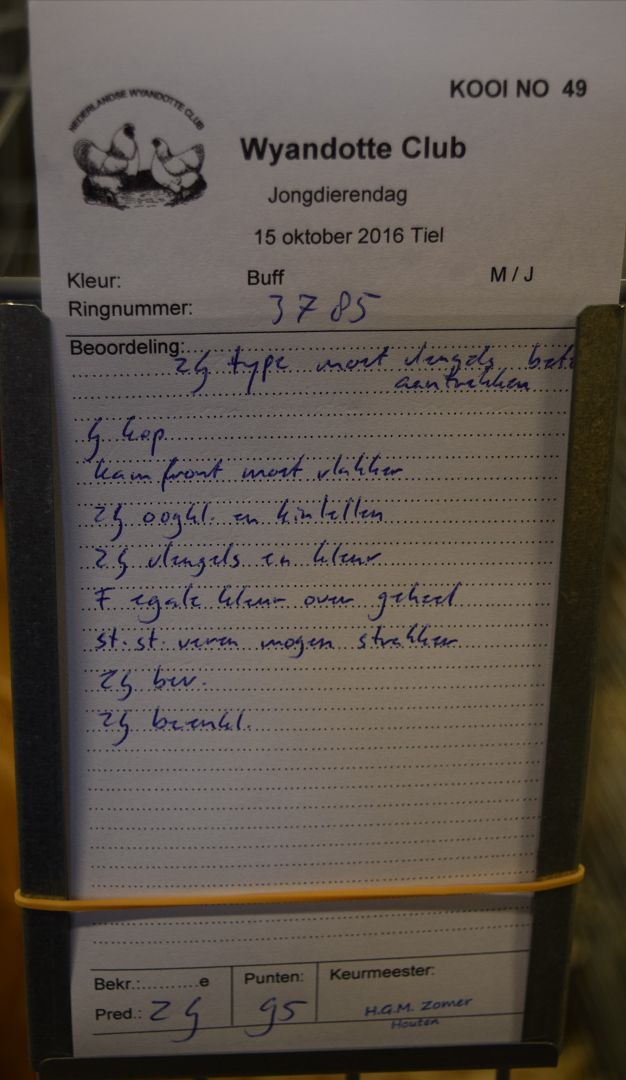 NEDERLANDSE WYANDOTTE CLUB
KOOI NO 49
Wyandotte Club
Jongdierendag
15 oktober 2016 Tiel
Kleur: Buff M / J
Ringnummer: 3785
Beoordeling:
ZG type moet vleugels
aantrekken
G kop
kam front moet vlakker
ZG oogkl. en kinlellen
ZG vleugels en kleur
F egale kleur over geheel
st. st. veren mogen strakker
ZG bev.
ZG beenkl.
Bekr.:..........e Punten: Keurmeester:
Pred.: ZG 95 H.G.M. Zomer
Houten